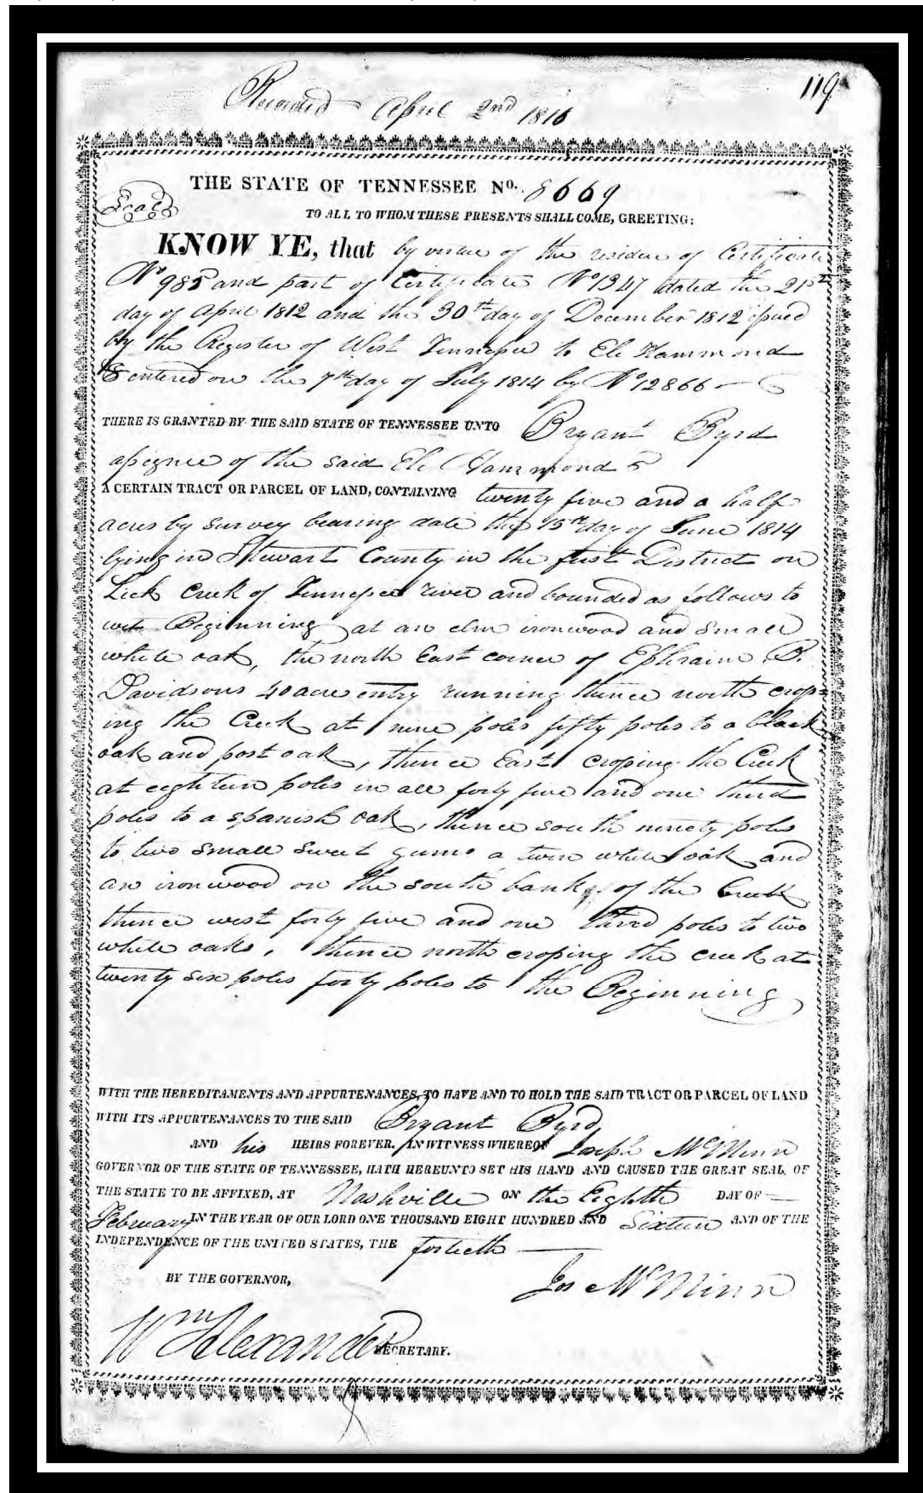 119
Recorded April 2nd 1816
THE STATE OF TENNESSEE No. 8669
Seal
TO ALL TO WHOM THESE PRESENTS SHALL COME, GREETING:
KNOW YE, that by virtue of the residue of Certificate
No 985 and part of Certificate No 1347 dated the 21st
day of April 1812 and the 30th day of December 1812 issued
by the Register of West Tennessee to Eli Hammond
& entered on the 7th day of July 1814 by No 12866
THERE IS GRANTED BY THE SAID STATE OF TENNESSEE UNTO Bryant Byrd
assignee of the said Eli Hammond
A CERTAIN TRACT OR PARCEL OF LAND, CONTAINING twenty five and a half
acres by survey bearing date the 15th day of June 1814
lying in Stuwart County in the first District on
Lick Creek of Tennessee river and bounded as follows to
wit Beginning at an elm ironwood and small
white oak, the north East corner of Ephraim B.
Davidsons 40 acre entry running thence north cross=
ing the Creek at nine poles fifty poles to a black
oak and post oak, thence East crossing the Creek
at eighteen poles in all forty five and one third
poles to a spanish oak, thence south ninety poles
to two small sweet gums a twin white oak and
an ironwood on the south bank of the Creek
thence west forty five and one third poles to two
white oaks, thence north crossing the creek at
twenty six poles forty poles to the Beginning
WITH THE HEREDITAMENTS AND APPURTENANCES, TO HAVE AND TO HOLD THE SAID TRACT OR PARCEL OF LAND
WITH ITS APPURTENANCES TO THE SAID Bryant Byrd
AND his HEIRS FOREVER. IN WITNESS WHEREOF Joseph McMinn
GOVERNOR OF THE STATE OF TENNESSEE, HATH HEREUNTO SET HIS HAND AND CAUSED THE GREAT SEAL OF
THE STATE TO BE AFFIXED, AT Nashville ON the Eighth DAY OF
February IN THE YEAR OF OUR LORD ONE THOUSAND EIGHT HUNDRED AND Sixteen AND OF THE
INDEPENDENCE OF THE UNITED STATES, THE fortieth
BY THE GOVERNOR, Jos McMinn
Wm Alexander SECRETARY.